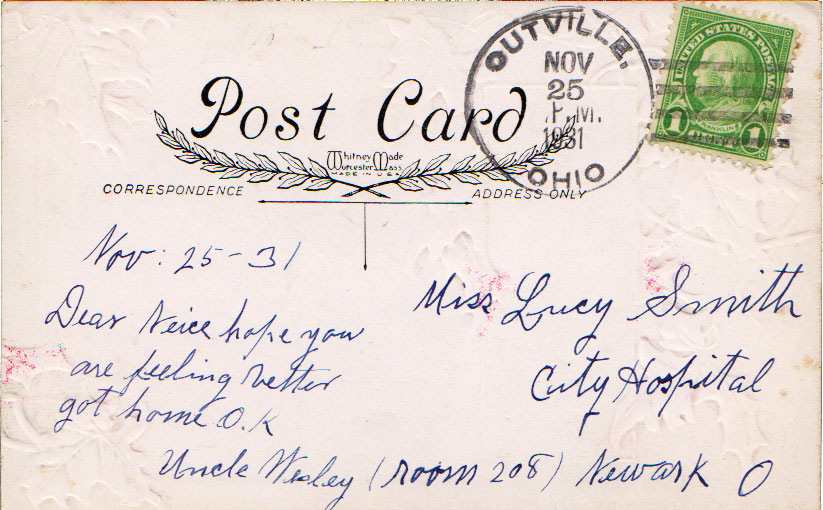 OUTVILLE,
NOV
25
P.M.
1931
OHIO
UNITED STATES POSTAGE
1 FRANKLIN 1
Post Card
Whitney Made
Worcester Mass.
MADE IN U.S.A.
CORRESPONDENCE
ADDRESS ONLY
Nov: 25-31
Dear Neice hope you
are feeling better
got home O.K
Uncle Wesley
Miss Lucy Smith
City Hospital
(room 208) Newark O